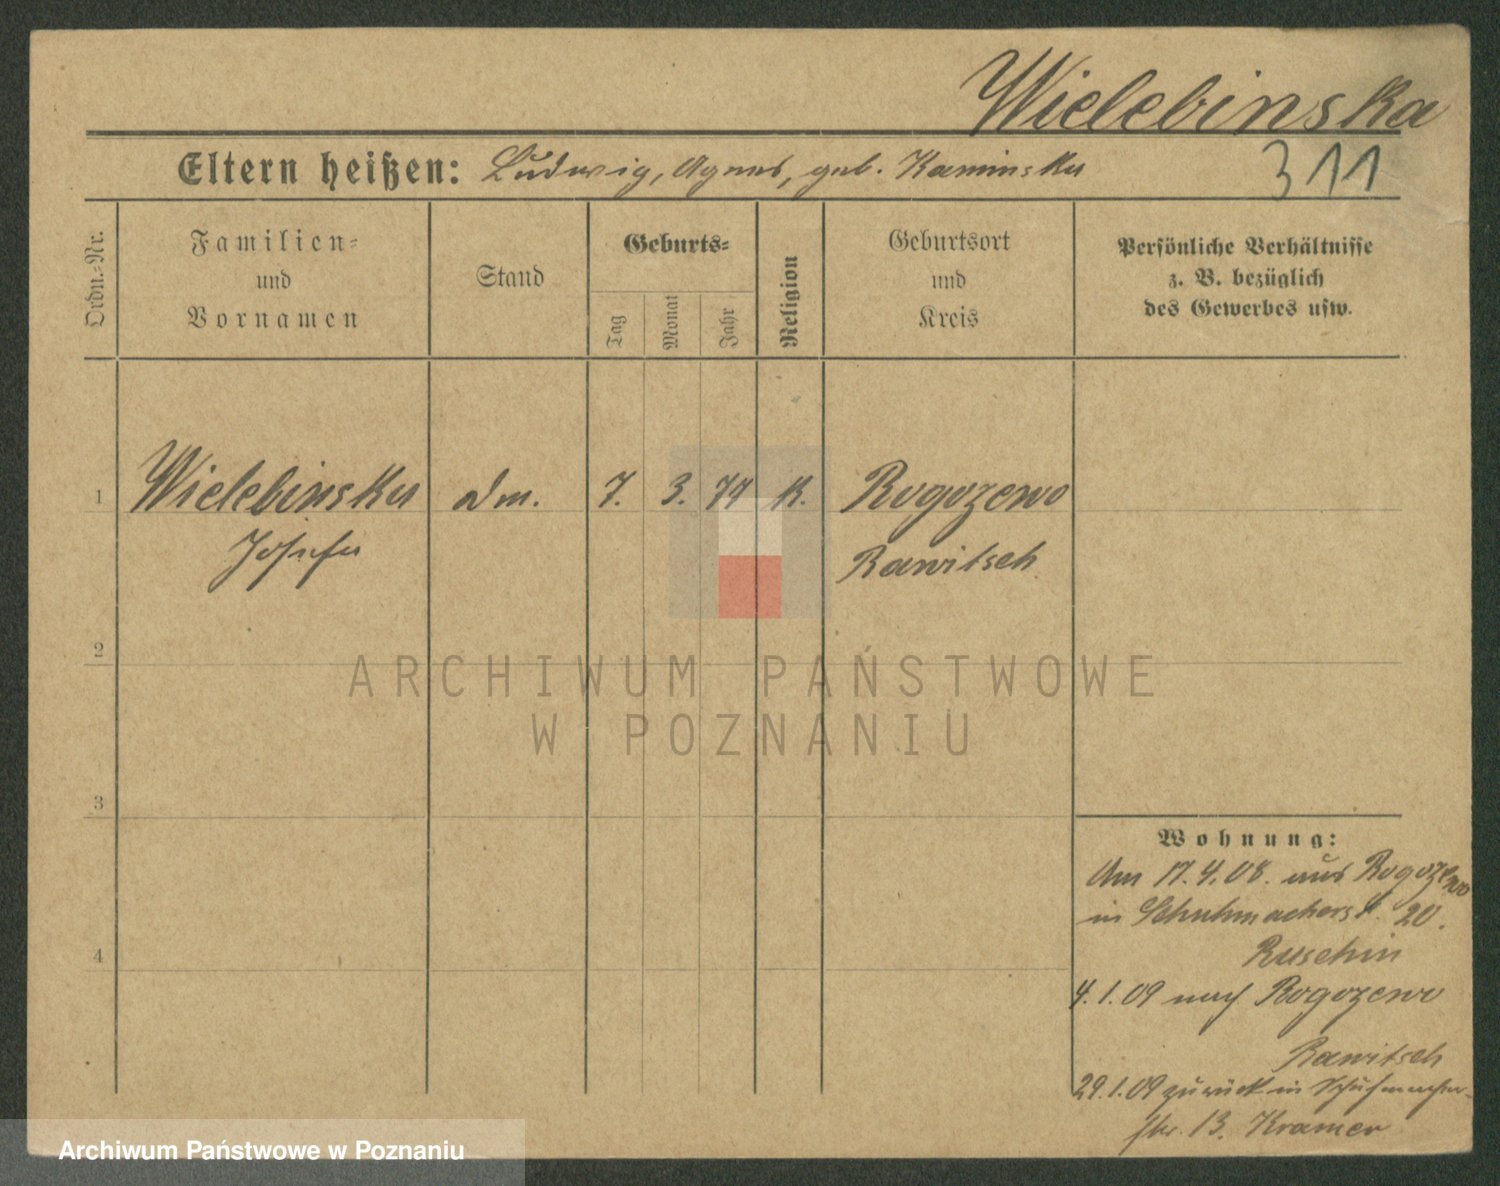 Wielebinska
Eltern heißen: Ludwig, Agnes, geb. Kaminska
311
Ordn.-Nr.
Familien-
und
Vornamen
Stand
Geburts-
Tag
Monat
Jahr
Religion
Geburtsort
und
Kreis
Persönliche Verhältnisse
z. B. bezüglich
des Gewerbes usw.
1 Wielebinska 7. 3. K. Rogozewo
Josefa Rawitsch
2
ARCHIWUM PAŃSTWOWE
W POZNANIU
3
Wohnung:
Am 17.4.08. aus Rogozewo
in Schuhmacherst. 20.
Ruschin
4
4.1.09 nach Rogozewo
Rawitsch
29.1.09 zurück in Schuhmacher-
str. 13. Kramer
Archiwum Państwowe w Poznaniu